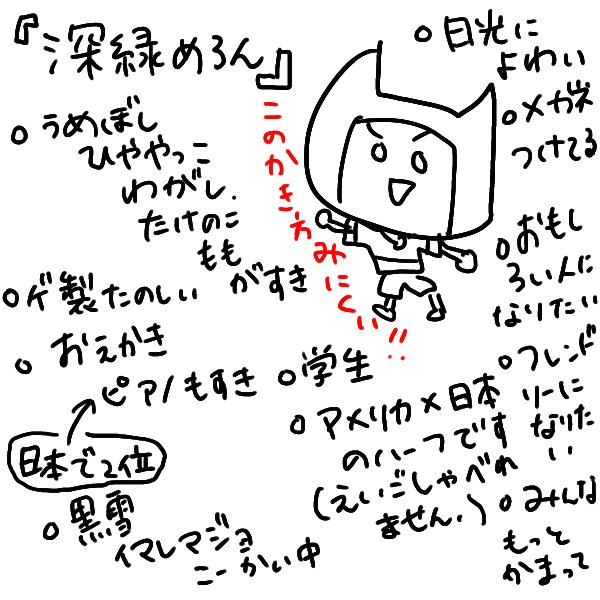 『深緑めろん』
このかき方みにくい!!
○うめぼし
ひややっこ
わがし、
たけのこ
もも
がすき
○ゲ製たのしい
○おえかき
ピアノもすき
日本で2位
○黒雪
イマレマジョ
こーかい中
○日光に
よわい
○メガネ
つけてる
○おもし
ろい人に
なりたい
○フレンド
リーに
なりた
い
○みんな
もっと
かまって
○学生
○アメリカ×日本
のハーフです
(えいごしゃべれ
ません。)